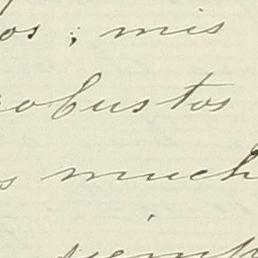 os ; mis
robustos
s much
siemp